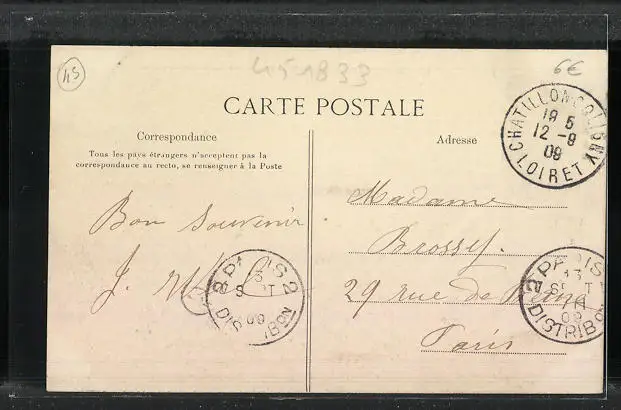 45
451833
6€
CARTE POSTALE
Correspondance
Adresse
Tous les pays étrangers n'acceptent pas la
correspondance au recto, se renseigner à la Poste
CHATILLON-COLIGNY
18 5
12-9
09
LOIRET
Bon souvenir
J.
Madame
Brossy.
29 rue de
Paris
PARIS 2
13
SEPT
09
DISTRIBON
PARIS
13
SEPT
09
DISTRIBON